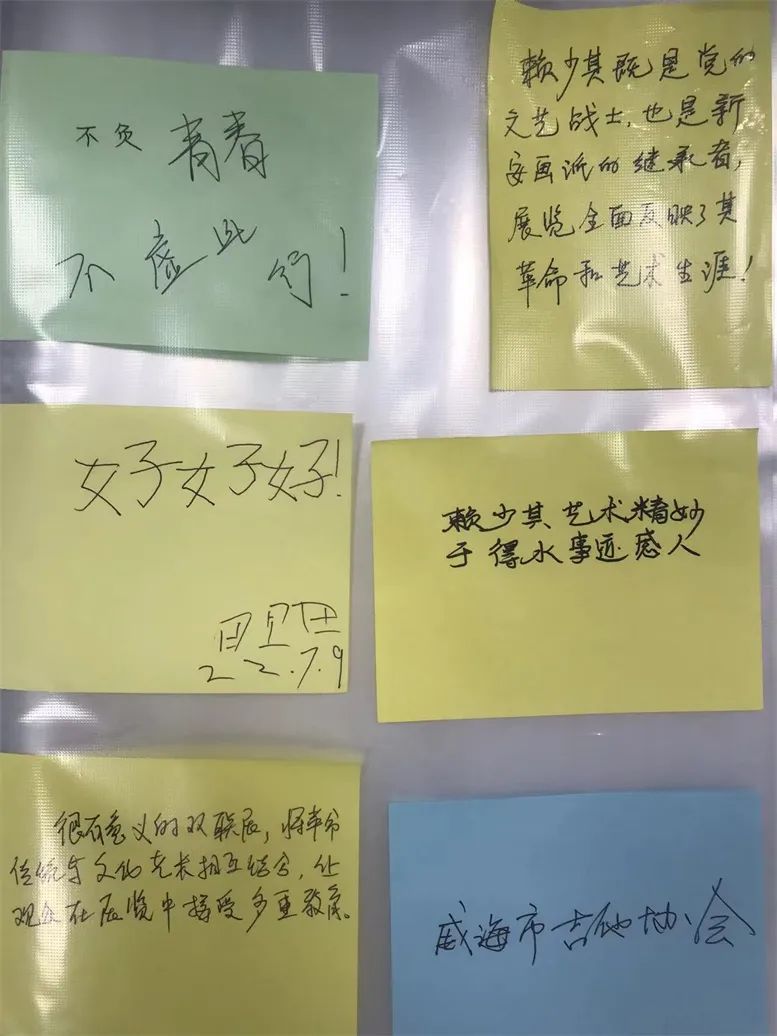 不负 青春
不虚此行！
赖少其既是党的
文艺战士，也是新
安画派的继承者，
展览全面反映了其
革命和艺术生涯！
好好好！
22.7.9
赖少其艺术精妙
于得水事迹感人
很有意义的双联展，将革命
传统与文化艺术相互结合，让
观众在展览中接受多重教育。
威海市吉他协会